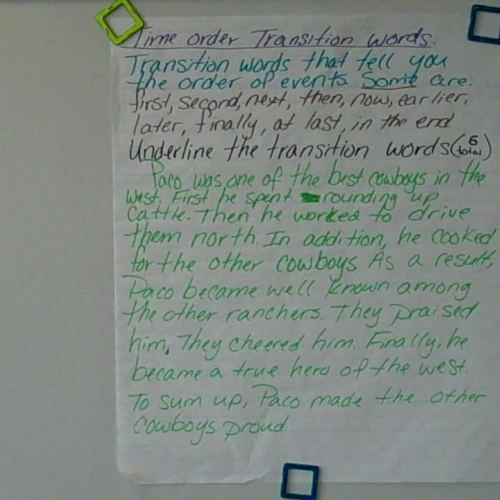 Time order Transition words.
Transition words that tell you
the order of events. Some are:
first, second, next, then, now, earlier,
later, finally, at last, in the end
Underline the transition words (6 total)
Paco was one of the best cowboys in the
west. First he spent rounding up
cattle. Then he worked to drive
them north. In addition, he cooked
for the other cowboys As a result,
Paco became well known among
the other ranchers. They praised
him. They cheered him. Finally, he
became a true hero of the west.
To sum up, Paco made the other
cowboys proud.